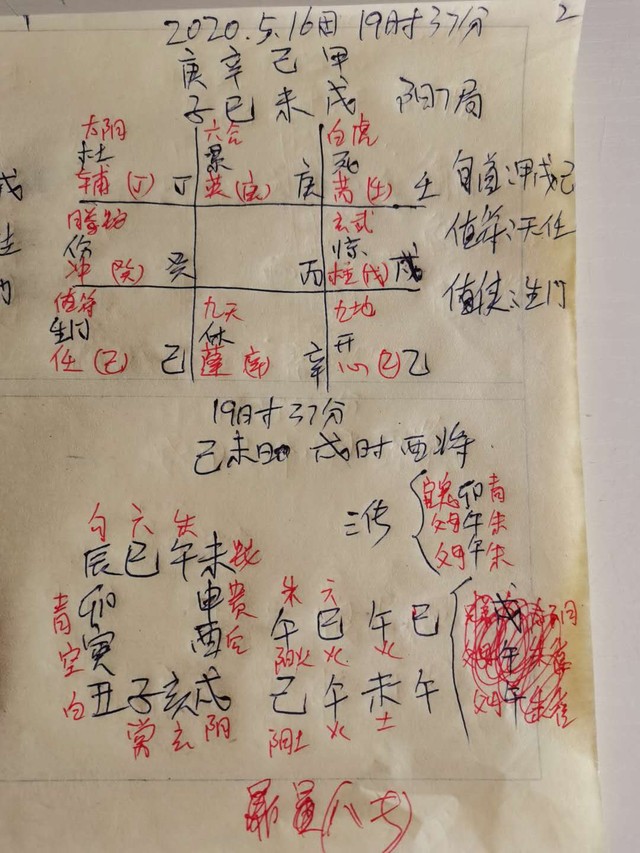 2020.5.16日 19时37分
2
庚 辛 己 甲
子 巳 未 戌 阳7局
太阳 六合 白虎
杜 景 死
辅(丁) 丁 英(庚) 庚 芮(壬) 壬
旬首:甲戌己
值符:天任
值使:生门
螣蛇 玄武
伤 惊
冲(癸) 癸 丙 柱(戊) 戊
值符 九天 九地
生门 休 开
任(己) 己 蓬(辛) 辛 心(乙) 乙
19时37分
己未日 戌时 酉将
三传
官鬼 卯 青
父母 午 朱
父母 午 朱
勾 六 朱
辰 巳 午 未 蛇
青 卯 申 贵
空 寅 酉 后
白 丑 子 亥 戌
常 玄 阴
朱 六
午 巳 午 巳
阳火 火 火
己 午 未 午
阳土 火 土
戌
午
父母 午